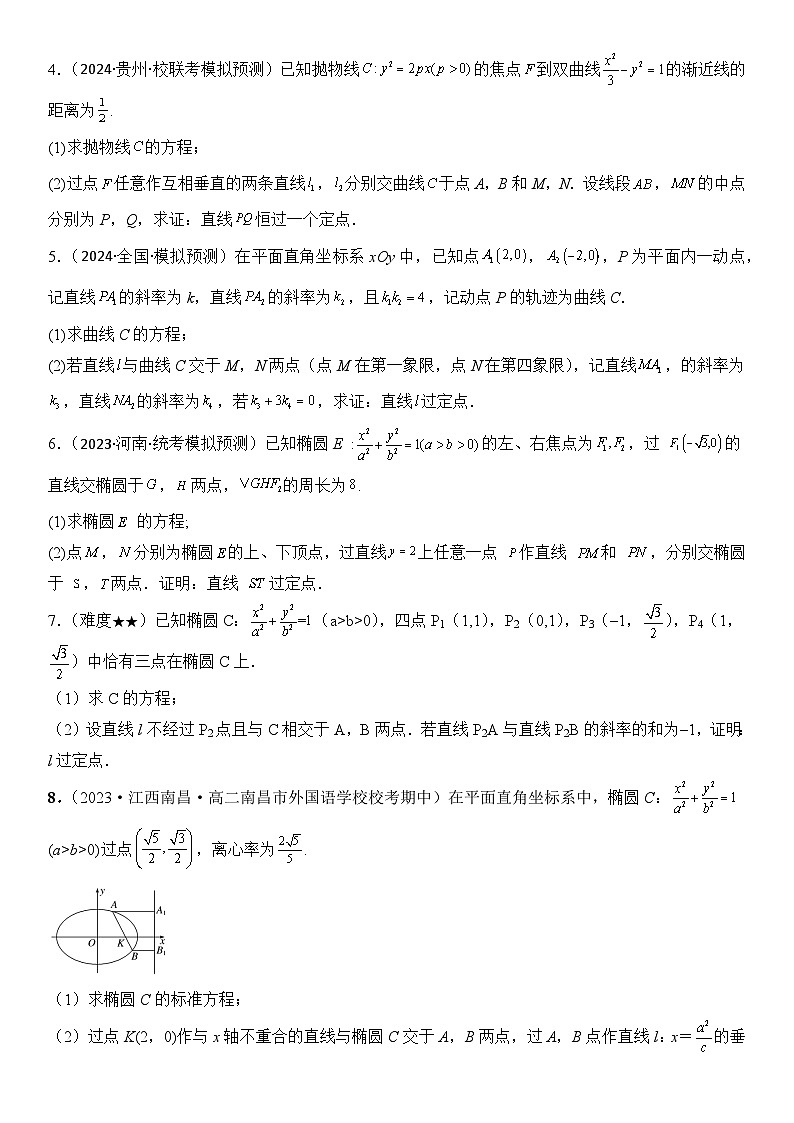 4.（2024·贵州·校联考模拟预测）已知抛物线C: y² = 2px(p > 0)的焦点F到双曲线x²/3 − y² = 1的渐近线的
距离为1/2.
(1)求抛物线C的方程；
(2)过点F任意作互相垂直的两条直线l₁，l₂分别交曲线C于点A，B和M，N. 设线段AB，MN的中点
分别为P，Q，求证：直线PQ恒过一个定点.
5.（2024·全国·模拟预测）在平面直角坐标系xOy中，已知点A₁(2,0)，A₂(−2,0)，P为平面内一动点，
记直线PA₁的斜率为k，直线PA₂的斜率为k₂，且k₁k₂ = 4，记动点P的轨迹为曲线C.
(1)求曲线C的方程；
(2)若直线l与曲线C交于M，N两点（点M在第一象限，点N在第四象限），记直线MA₁，的斜率为
k₃，直线NA₂的斜率为k₄，若k₃ + 3k₄ = 0，求证：直线l过定点.
6.（2023·河南·统考模拟预测）已知椭圆E : x²/a² + y²/b² = 1(a > b > 0)的左、右焦点为F₁,F₂，过 F₁(−√3,0)的
直线交椭圆于G，H两点，VGHF₂的周长为8.
(1)求椭圆E 的方程;
(2)点M，N分别为椭圆E的上、下顶点，过直线y = 2上任意一点 P作直线 PM和 PN，分别交椭圆
于 S，T两点．证明：直线 ST过定点.
7.（难度★★）已知椭圆C：x²/a² + y²/b² =1（a>b>0），四点P₁（1,1），P₂（0,1），P₃（–1，√3/2），P₄（1，
√3/2）中恰有三点在椭圆C上.
（1）求C的方程；
（2）设直线l不经过P₂点且与C相交于A，B两点．若直线P₂A与直线P₂B的斜率的和为–1，证明：
l过定点.
8.（2023·江西南昌·高二南昌市外国语学校校考期中）在平面直角坐标系中，椭圆C：x²/a² + y²/b² = 1
(a>b>0)过点(√5/2, √3/2)，离心率为2√5/5.
y
A
A₁
O
K
x
B
B₁
（1）求椭圆C的标准方程；
（2）过点K(2，0)作与x轴不重合的直线与椭圆C交于A，B两点，过A，B点作直线l：x＝a²/c的垂